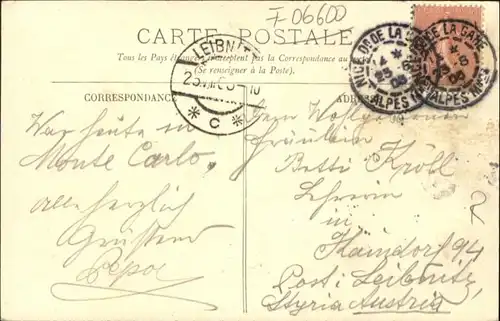 F 06600
CARTE POSTALE
Tous les Pays étrangers n'acceptent pas la Correspondance au
(Se renseigner à la Poste).
CORRESPONDANCE
ADRE
LEIBNITZ
C
DE LA GARE
ALPES MMES
War heute in
Monte Carlo,
allerherzlich
Grüssend
Pepa
Dem Wohlgebornen
Fräulein
Betti Kröll
Lehrerin
in
Kaindorf 94
Post: Leibnitz
Styria Austria
R